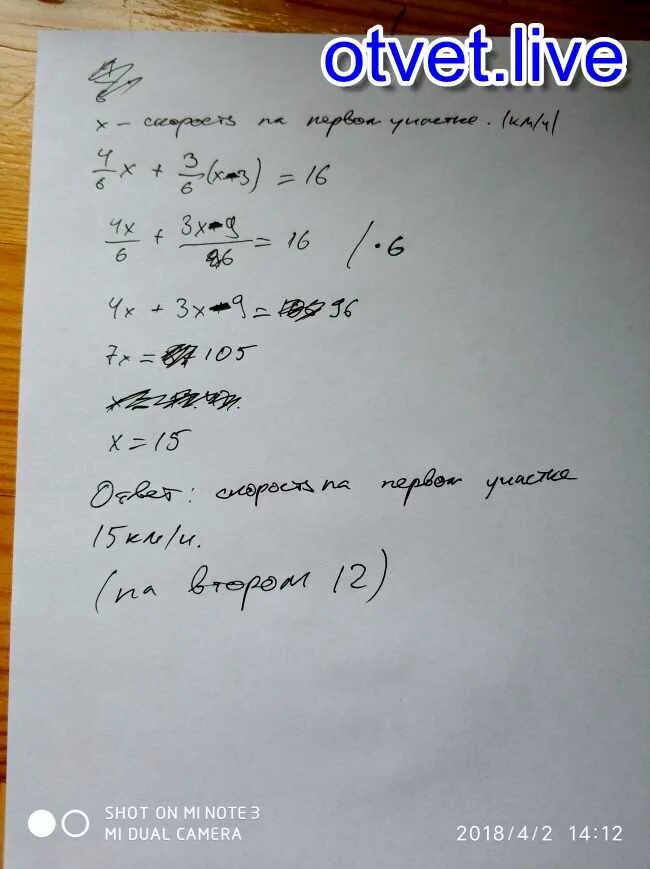 otvet.live
x – скорость на первом участке. (км/ч)
4/6 x + 3/6 (x-3) = 16
4x/6 + 3x-9/6 = 16 / · 6
4x + 3x - 9 = 96
7x = 105
x = 15
Ответ: скорость на первом участке
15 км/ч.
(на втором 12)
SHOT ON MI NOTE 3
MI DUAL CAMERA
2018/4/2 14:12